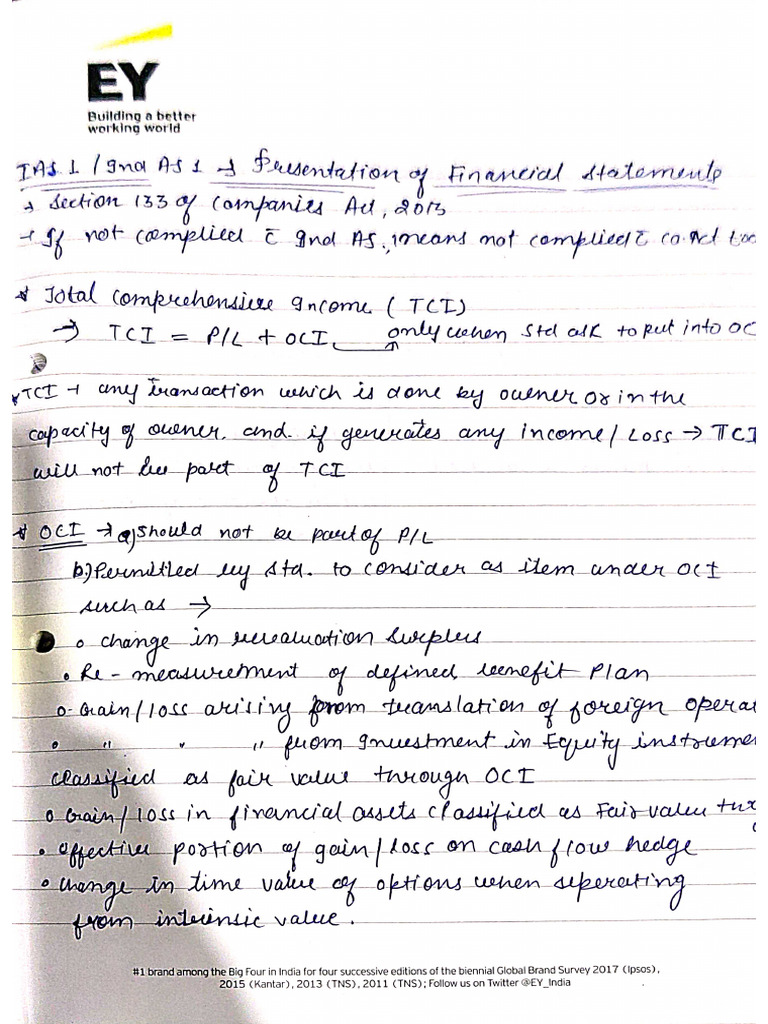 EY
Building a better
working world
IAS 1 / Ind AS 1 → Presentation of Financial Statements
→ Section 133 of Companies Act, 2013
→ If not complied c̄ Ind AS, means not complied c̄ co. Act too
* Total Comprehensive Income (TCI)
→ TCI = P/L + OCI only when Std ask to put into OC
* TCI → any transaction which is done by owner or in the
capacity of owner, and if generates any income / Loss → TCI
will not be part of TCI
* OCI → a) should not be part of P/L
b) Permitted by Std. to consider as item under OCI
such as →
o change in revaluation surplus
• Re-measurement of defined benefit Plan
o Gain/loss arising from translation of foreign opera
o " " " from Investment in Equity instrume
classified as fair value through OCI
o Gain/loss in financial assets classified as Fair value
• effective portion of gain/loss on cash flow hedge
• change in time value of options when seperating
from intrinsic value.
#1 brand among the Big Four in India for four successive editions of the biennial Global Brand Survey 2017 (Ipsos),
2015 (Kantar), 2013 (TNS), 2011 (TNS); Follow us on Twitter @EY_India